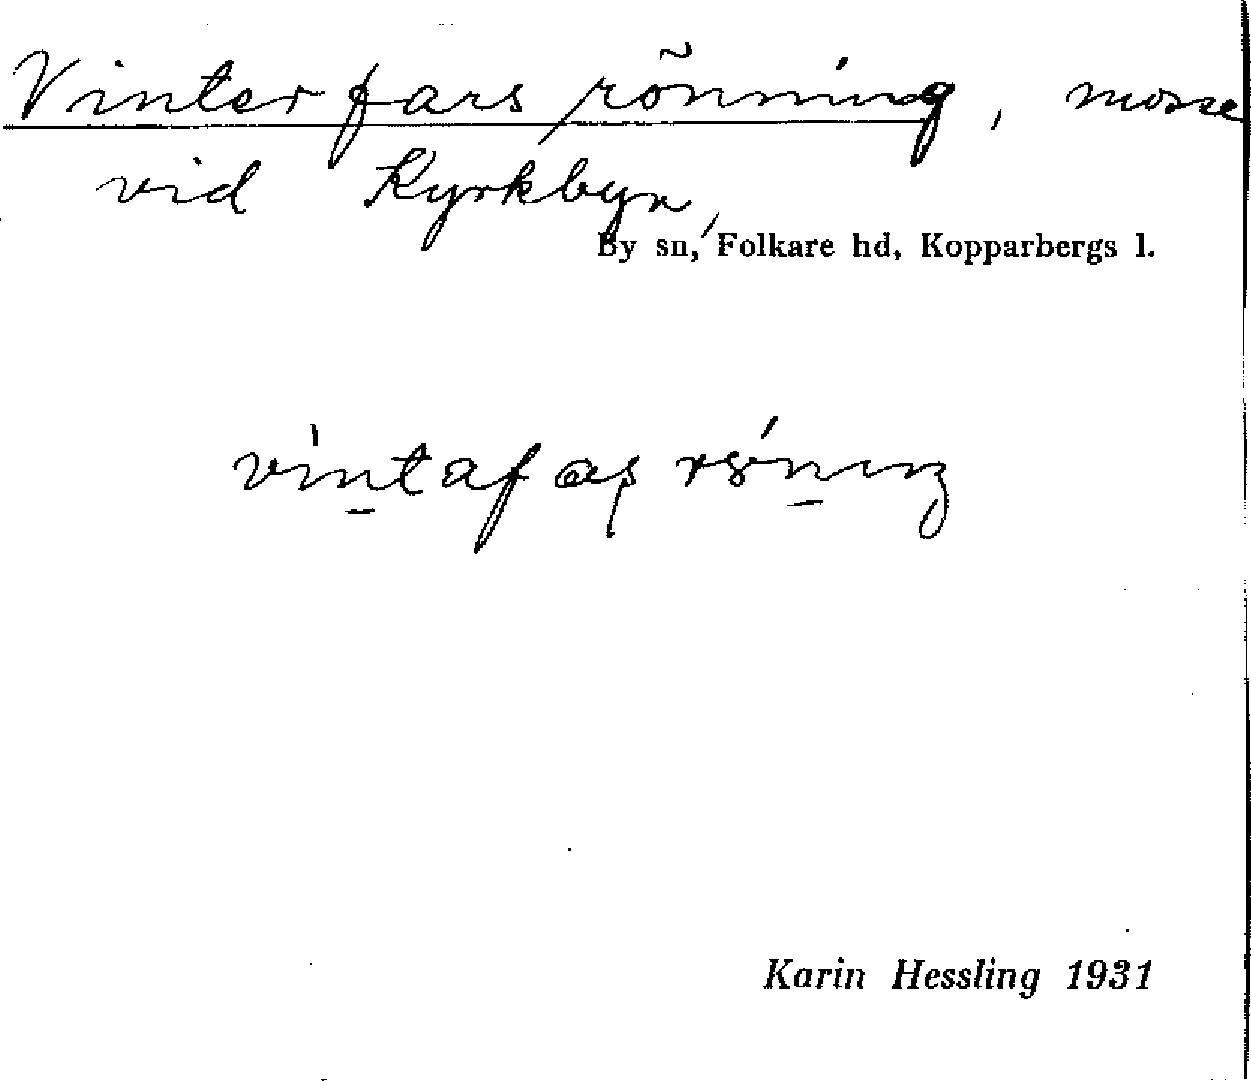 Vinterfars rönning, mosse
vid Kyrkbyn,
By sn, Folkare hd, Kopparbergs l.
Karin Hessling 1931